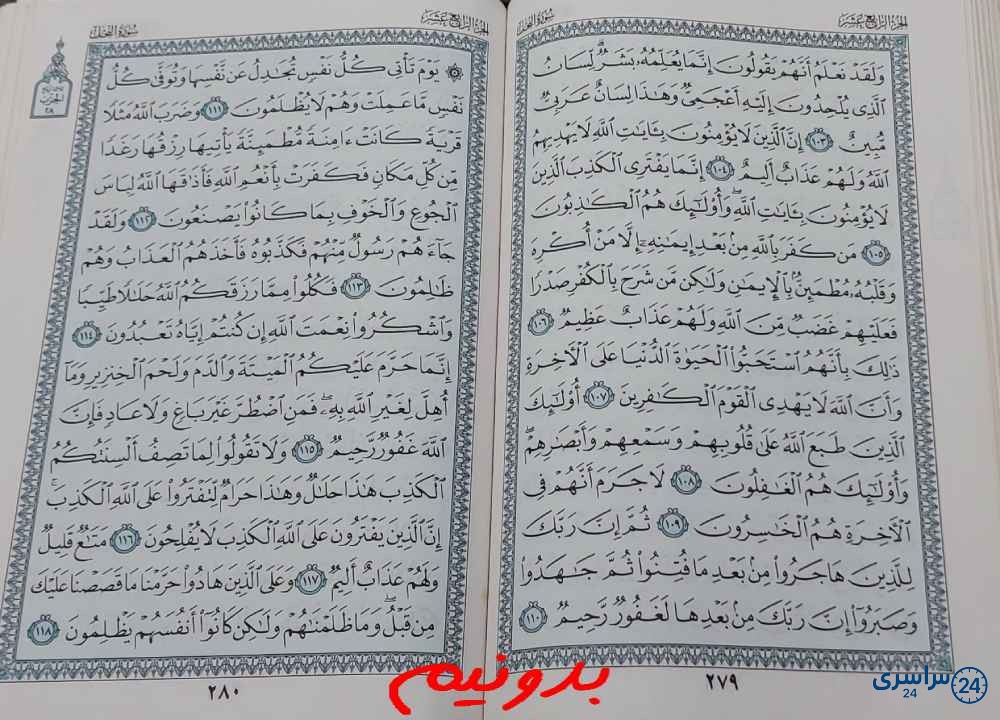 الجزء الرابع عشر
سورة النحل
وَلَقَدْ نَعْلَمُ أَنَّهُمْ يَقُولُونَ إِنَّمَا يُعَلِّمُهُۥ بَشَرٌۗ لِّسَانُ
ٱلَّذِى يُلْحِدُونَ إِلَيْهِ أَعْجَمِىٌّ وَهَٰذَا لِسَانٌ عَرَبِىٌّ
مُّبِينٌ ١٠٣ إِنَّ ٱلَّذِينَ لَا يُؤْمِنُونَ بِـَٔايَٰتِ ٱللَّهِ لَا يَهْدِيهِمُ
ٱللَّهُ وَلَهُمْ عَذَابٌ أَلِيمٌ ١٠٤ إِنَّمَا يَفْتَرِى ٱلْكَذِبَ ٱلَّذِينَ
لَا يُؤْمِنُونَ بِـَٔايَٰتِ ٱللَّهِۖ وَأُو۟لَٰٓئِكَ هُمُ ٱلْكَٰذِبُونَ
١٠٥ مَن كَفَرَ بِٱللَّهِ مِنۢ بَعْدِ إِيمَٰنِهِۦٓ إِلَّا مَنْ أُكْرِهَ
وَقَلْبُهُۥ مُطْمَئِنٌّۢ بِٱلْإِيمَٰنِ وَلَٰكِن مَّن شَرَحَ بِٱلْكُفْرِ صَدْرًا
فَعَلَيْهِمْ غَضَبٌ مِّنَ ٱللَّهِ وَلَهُمْ عَذَابٌ عَظِيمٌ ١٠٦
ذَٰلِكَ بِأَنَّهُمُ ٱسْتَحَبُّوا۟ ٱلْحَيَوٰةَ ٱلدُّنْيَا عَلَى ٱلْـَٔاخِرَةِ
وَأَنَّ ٱللَّهَ لَا يَهْدِى ٱلْقَوْمَ ٱلْكَٰفِرِينَ ١٠٧ أُو۟لَٰٓئِكَ
ٱلَّذِينَ طَبَعَ ٱللَّهُ عَلَىٰ قُلُوبِهِمْ وَسَمْعِهِمْ وَأَبْصَٰرِهِمْۖ
وَأُو۟لَٰٓئِكَ هُمُ ٱلْغَٰفِلُونَ ١٠٨ لَا جَرَمَ أَنَّهُمْ فِى
ٱلْـَٔاخِرَةِ هُمُ ٱلْخَٰسِرُونَ ١٠٩ ثُمَّ إِنَّ رَبَّكَ
لِلَّذِينَ هَاجَرُوا۟ مِنۢ بَعْدِ مَا فُتِنُوا۟ ثُمَّ جَٰهَدُوا۟
وَصَبَرُوٓا۟ إِنَّ رَبَّكَ مِنۢ بَعْدِهَا لَغَفُورٌ رَّحِيمٌ ١١٠
٢٧٩
الجزء الرابع عشر
سورة النحل
الحزب
٢٨
۞ يَوْمَ تَأْتِى كُلُّ نَفْسٍ تُجَٰدِلُ عَن نَّفْسِهَا وَتُوَفَّىٰ كُلُّ
نَفْسٍ مَّا عَمِلَتْ وَهُمْ لَا يُظْلَمُونَ ١١١ وَضَرَبَ ٱللَّهُ مَثَلًا
قَرْيَةً كَانَتْ ءَامِنَةً مُّطْمَئِنَّةً يَأْتِيهَا رِزْقُهَا رَغَدًا
مِّن كُلِّ مَكَانٍ فَكَفَرَتْ بِأَنْعُمِ ٱللَّهِ فَأَذَٰقَهَا ٱللَّهُ لِبَاسَ
ٱلْجُوعِ وَٱلْخَوْفِ بِمَا كَانُوا۟ يَصْنَعُونَ ١١٢ وَلَقَدْ
جَآءَهُمْ رَسُولٌ مِّنْهُمْ فَكَذَّبُوهُ فَأَخَذَهُمُ ٱلْعَذَابُ وَهُمْ
ظَٰلِمُونَ ١١٣ فَكُلُوا۟ مِمَّا رَزَقَكُمُ ٱللَّهُ حَلَٰلًا طَيِّبًا
وَٱشْكُرُوا۟ نِعْمَتَ ٱللَّهِ إِن كُنتُمْ إِيَّاهُ تَعْبُدُونَ ١١٤
إِنَّمَا حَرَّمَ عَلَيْكُمُ ٱلْمَيْتَةَ وَٱلدَّمَ وَلَحْمَ ٱلْخِنزِيرِ وَمَآ
أُهِلَّ لِغَيْرِ ٱللَّهِ بِهِۦۖ فَمَنِ ٱضْطُرَّ غَيْرَ بَاغٍ وَلَا عَادٍ فَإِنَّ
ٱللَّهَ غَفُورٌ رَّحِيمٌ ١١٥ وَلَا تَقُولُوا۟ لِمَا تَصِفُ أَلْسِنَتُكُمُ
ٱلْكَذِبَ هَٰذَا حَلَٰلٌ وَهَٰذَا حَرَامٌ لِّتَفْتَرُوا۟ عَلَى ٱللَّهِ ٱلْكَذِبَۚ
إِنَّ ٱلَّذِينَ يَفْتَرُونَ عَلَى ٱللَّهِ ٱلْكَذِبَ لَا يُفْلِحُونَ ١١٦ مَتَٰعٌ قَلِيلٌ
وَلَهُمْ عَذَابٌ أَلِيمٌ ١١٧ وَعَلَى ٱلَّذِينَ هَادُوا۟ حَرَّمْنَا مَا قَصَصْنَا عَلَيْكَ
مِن قَبْلُۖ وَمَا ظَلَمْنَٰهُمْ وَلَٰكِن كَانُوٓا۟ أَنفُسَهُمْ يَظْلِمُونَ ١١٨
٢٨٠
بدونیم
سراسری 24
24